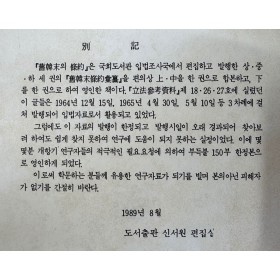 別 記
『舊韓末의 條約』은 국회도서관 입법조사국에서 편집하고 발행한 상·중
·하 세 권의 『舊韓末條約彙纂』을 편의상 上·中을 한 권으로 합본하고, 下
를 한 권으로 하여 영인한 책이다. 『立法參考資料』제 18·26·27호에 실렸던
이 글들은 1964년 12월 15일, 1965년 4월 30일, 5월 10일 등 3차례에 걸
쳐 발행되어 입법자료로서 활용되고 있었다.
그럼에도 이 자료의 발행이 한정되고 발행시일이 오래 경과되어 찾아보
려 하여도 쉽게 찾지 못하여 연구에 도움이 되지 못하는 실정이었다. 이에 몇
몇분 개항기 연구자들의 적극적인 필요요청에 의하여 부득불 150부 한정본으
로 영인하게 되었다.
이로써 학문하는 분들께 유용한 연구자료가 되기를 빌며 본의아닌 피해자
가 없기를 간절히 바란다.
1989년 8월
도서출판 신서원 편집실